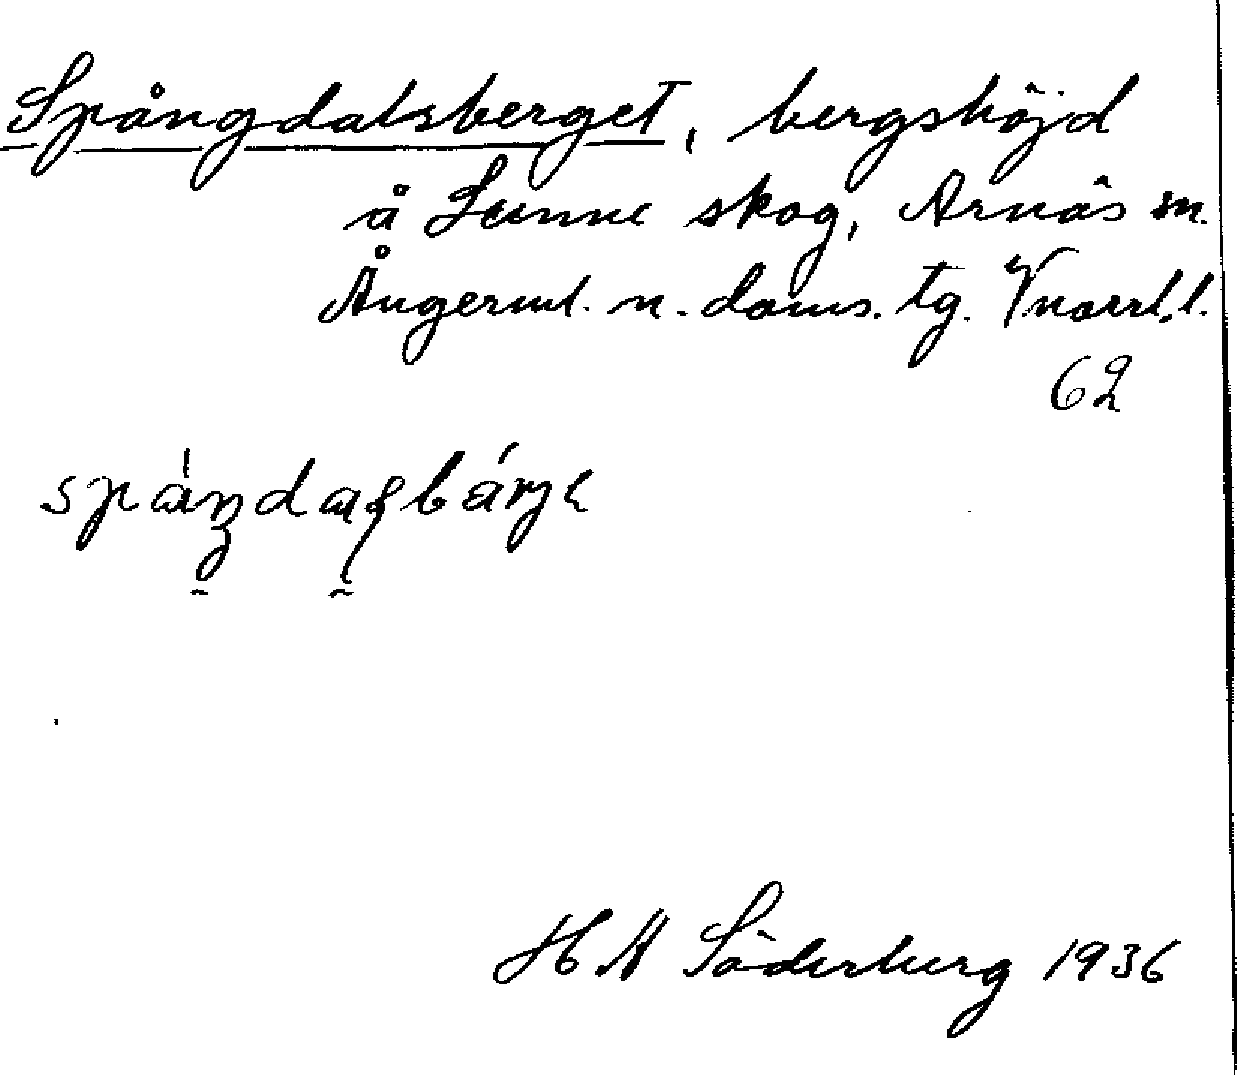 Spångdalsberget, bergshöjd
å Sunne skog, Arnäs sn.
Ångerml. n. doms. tg. Vnorrl. l.
62
H A Söderberg 1936